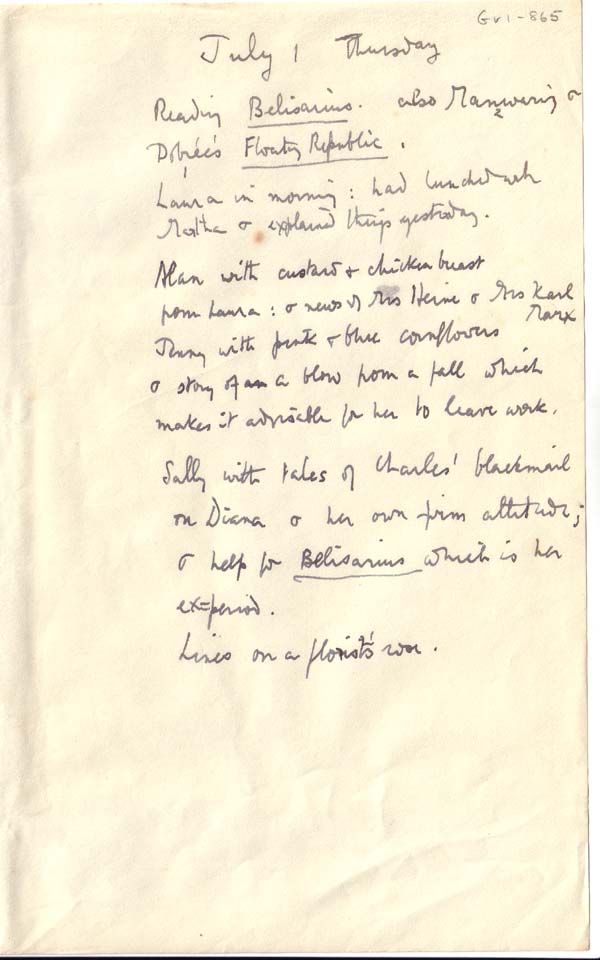 Gv1-865
July 1 Thursday
Reading Belisarius. also Manwaring &
Dobrée's Floating Republic.
Laura in morning: had lunched with
Martha & explained things yesterday.
Alan with custard & chicken breast
from Laura: & news of Mrs Heine & Mrs Karl
Marx
Jenny with pink & blue cornflowers
& story of a blow from a fall which
makes it advisable for her to leave work.
Sally with tales of Charles' blackmail
on Diana & her own firm attitude;
& help for Belisarius which is her
ex=period.
Lines on a florist's rose.